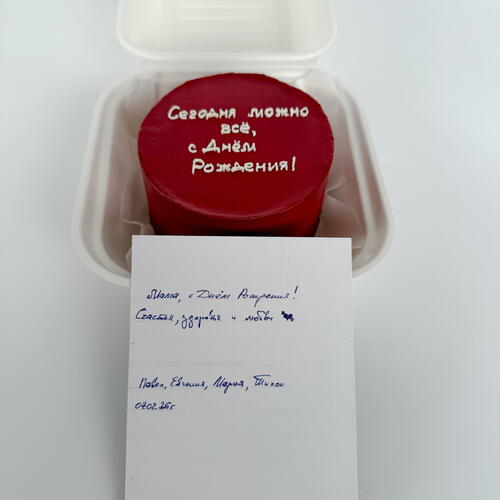 Сегодня можно
всё,
с Днём
Рождения!
Мама, с Днём Рождения!
Счастья, здоровья и любви
Павел, Евгения, Мария, Тихон
07.02.26г.